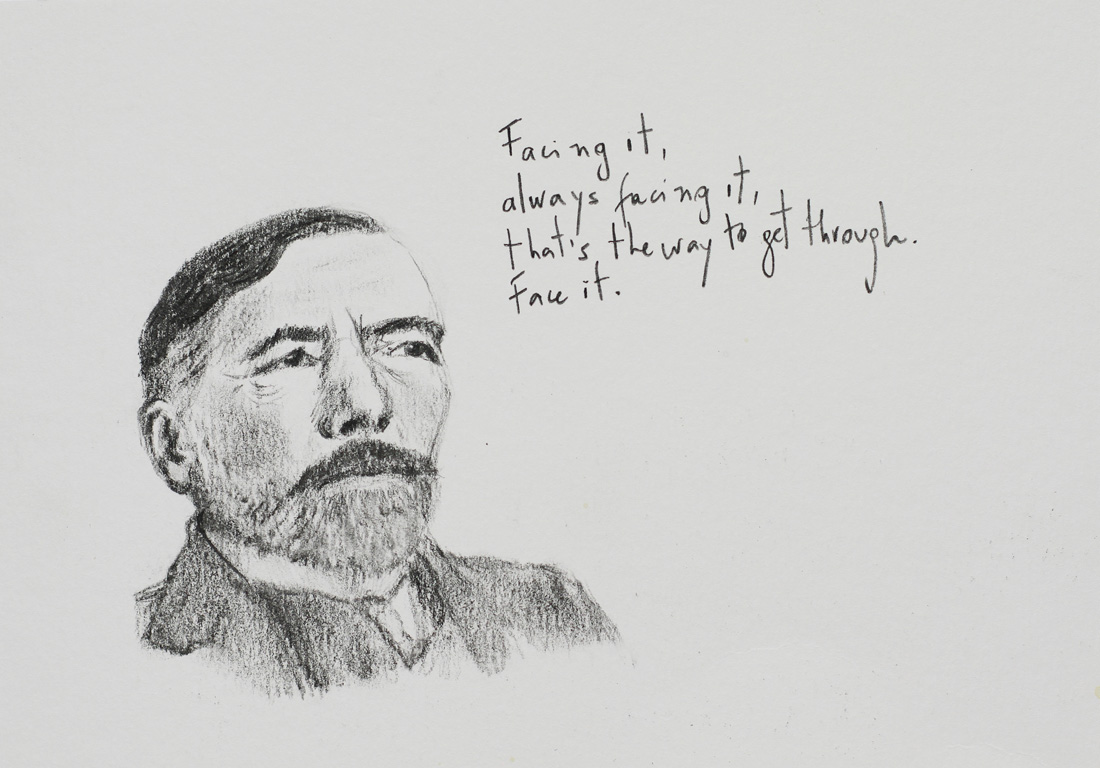 Facing it,
always facing it,
that's the way to get through.
Face it.